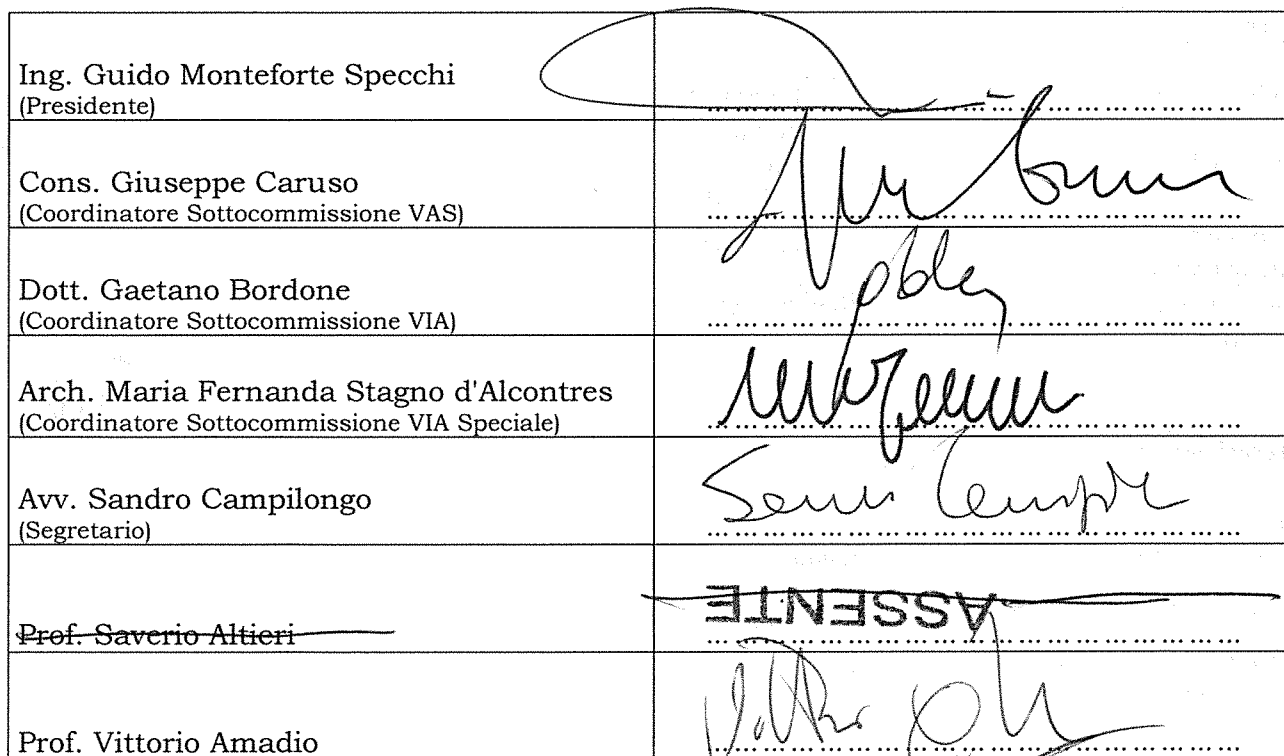 Ing. Guido Monteforte Specchi
(Presidente)
Cons. Giuseppe Caruso
(Coordinatore Sottocommissione VAS)
Dott. Gaetano Bordone
(Coordinatore Sottocommissione VIA)
Arch. Maria Fernanda Stagno d'Alcontres
(Coordinatore Sottocommissione VIA Speciale)
Avv. Sandro Campilongo
(Segretario)
Prof. Saverio Altieri
ASSENTE
Prof. Vittorio Amadio